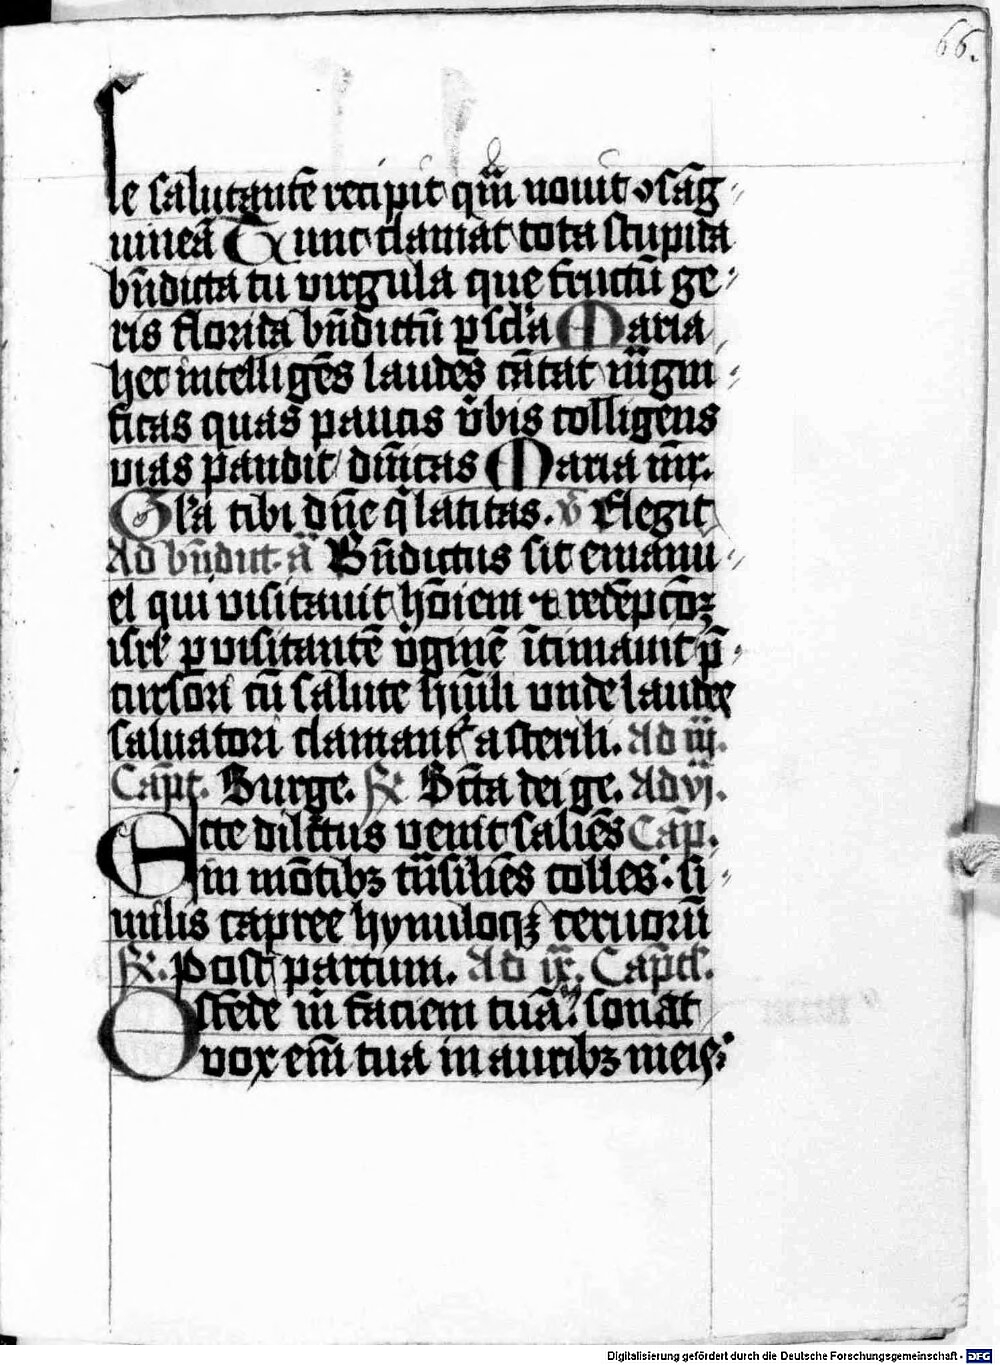 66.
le salutantē recipit qm̄ novit ꝯsāg„
uineā Tunc clamat tota stupida
bn̄dicta tu virgula que fructū ge„
ris florida bn̄dictū ꝑ scl'a Maria
hec intelligēs laudes cātat
ficas quas paucis v̄bis colligens
vias pandit divītas Maria mr̄.
Gl'a tibi dn̄e q̄ latitas. v̄ Elegit
Ad bn̄dict. ā Bn̄dictus sit emanu„
el qui visitavit hōiem ⁊ redēpcōꝫ
isrl' ꝑ visitantē v̄ginē ītimavit p̄„
cursori cū salute hūili unde laudes
salvatori clamant' a sterili. Ad iij.
Capt̄. Surge. ℟ Sc̄ta dei ge. Ad vj.
Ecce dilc̄tus venit saliēs Cap̄.
in mōtibꝫ tn̄siliēs colles. si„
milis capree hynuloqꝫ cervorū
℟. Post partum. Ad ix. Capl̄s.
Ostēde m̄ faciem tuā. sonat
vox em̄ tua in auribꝫ meis
Digitalisierung gefördert durch die Deutsche Forschungsgemeinschaft - DFG